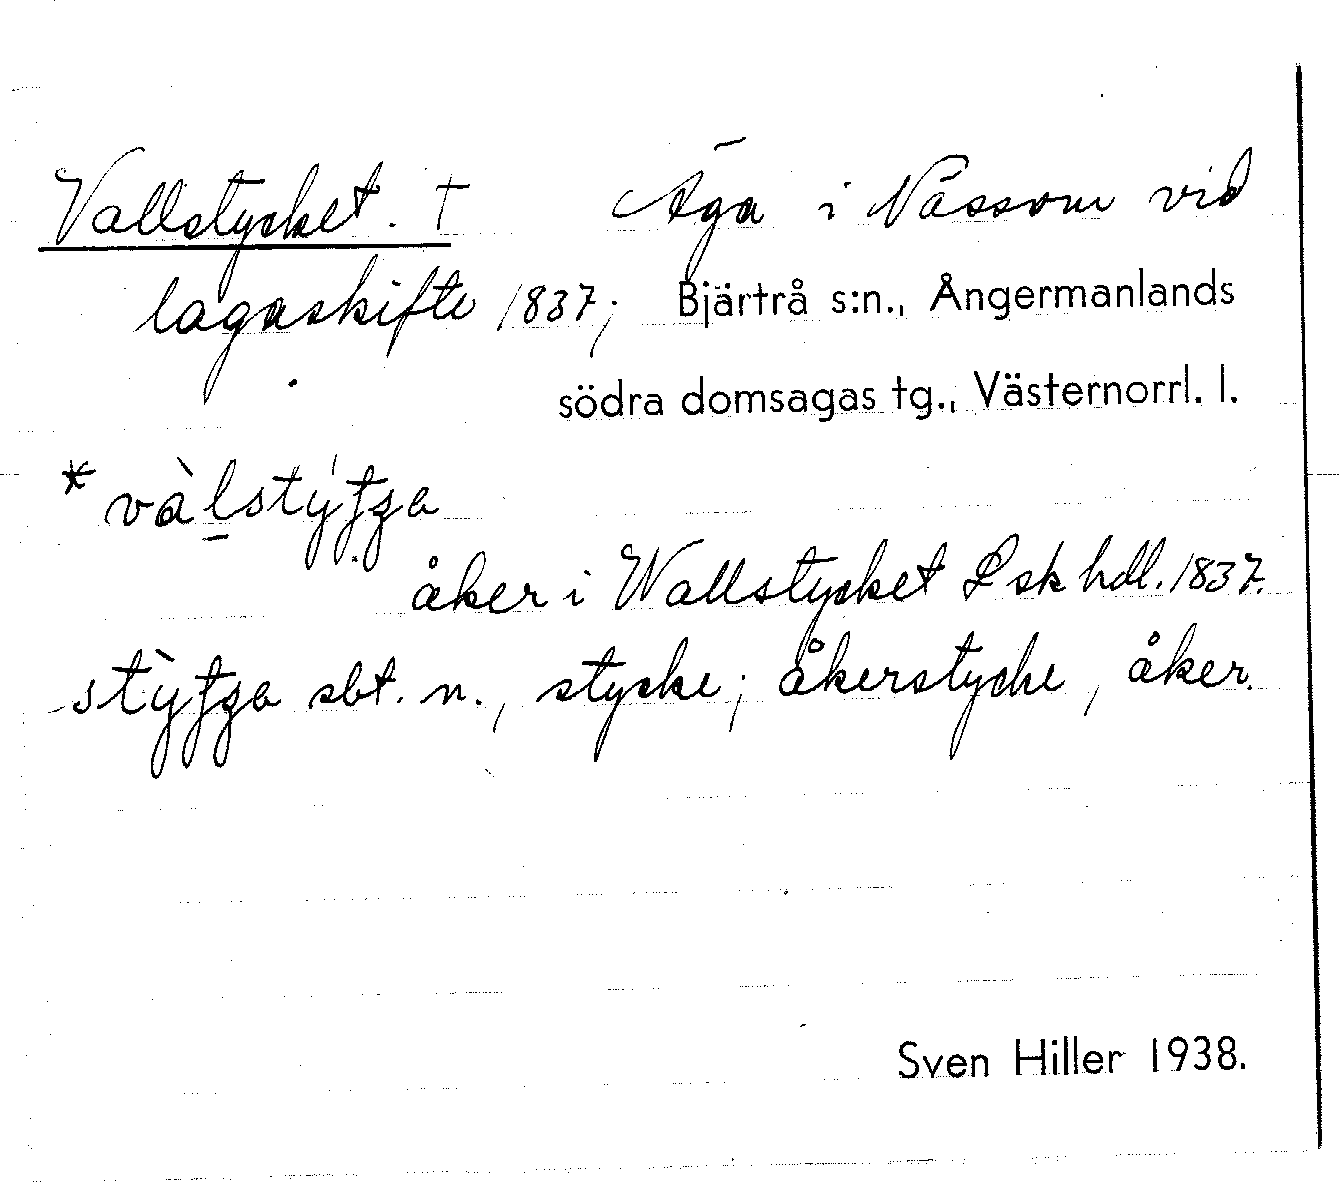 Vallstycket. † Äga i Nässom vid
lagaskifte 1837; Bjärtrå s:n., Ångermanlands
södra domsagas tg., Västernorrl. l.
åker i Wallstycket L sk hdl. 1837.
sbt. n., stycke; åkerstycke, åker.
Sven Hiller 1938.